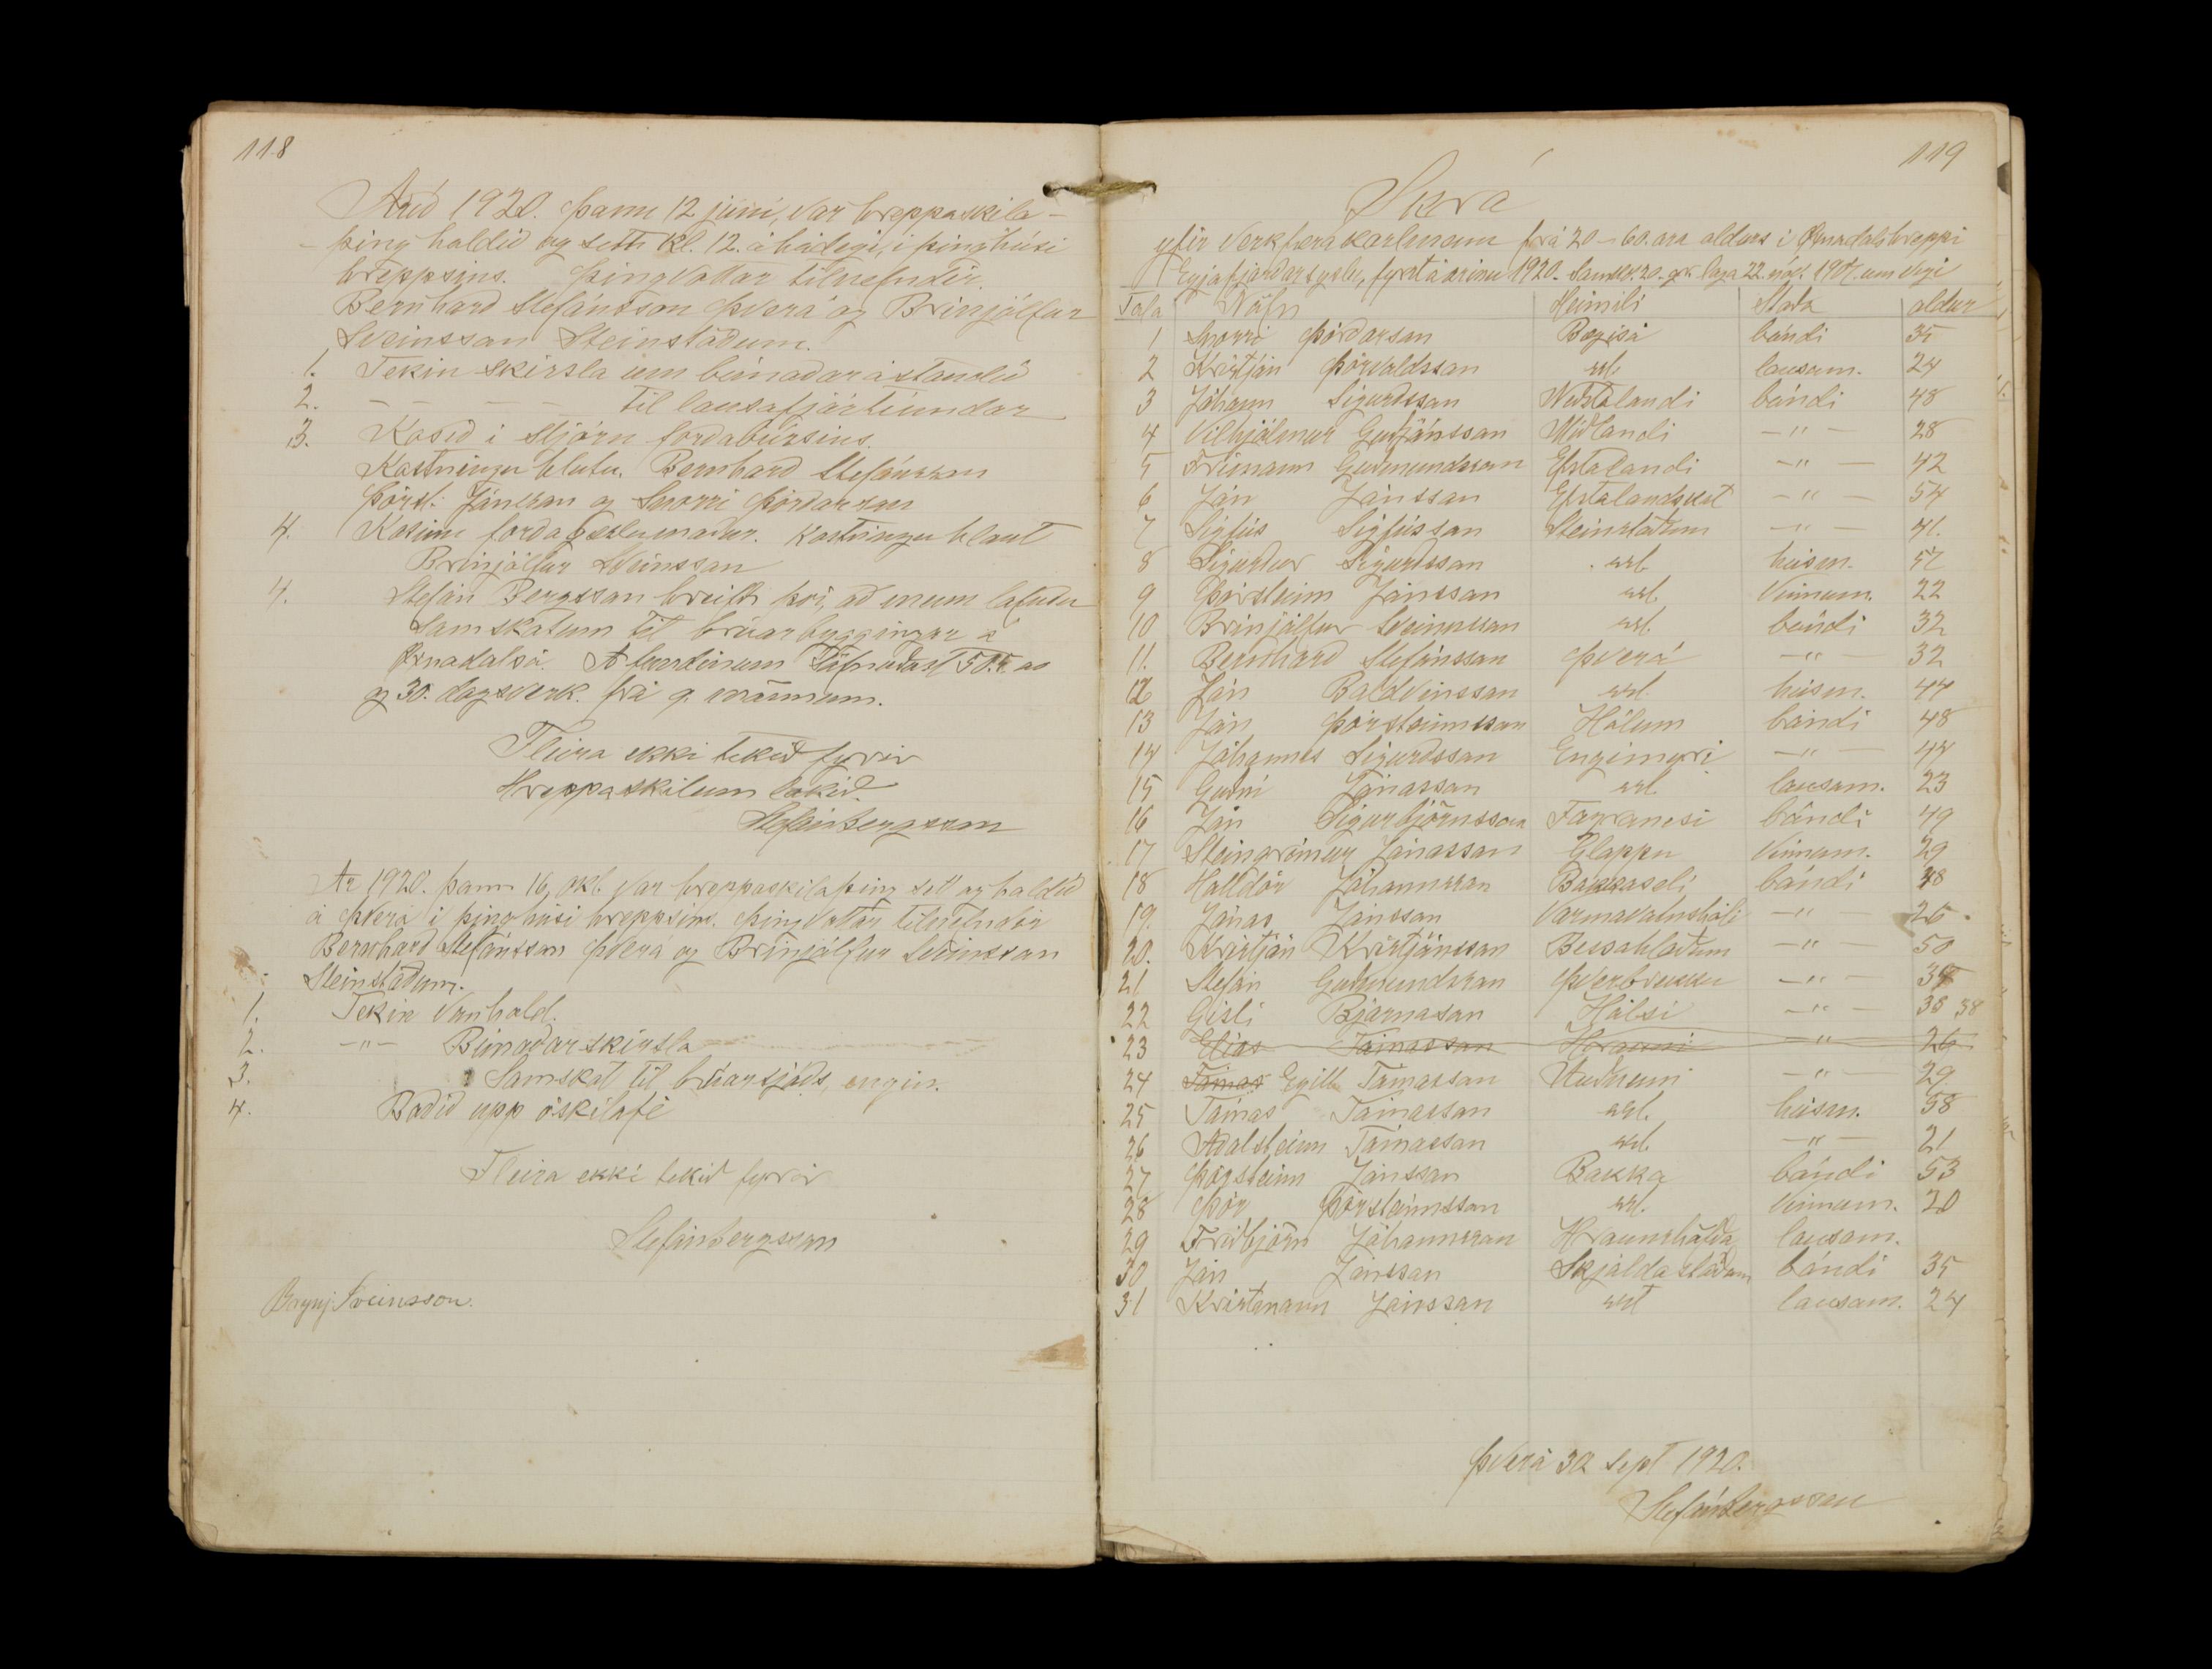 118
Árið 1920. þann 12 júní, var hreppaskila-
-þing haldið og sett kl. 12. á hádegi, í þinghúsi
hreppsins. Þingvottar tilnefndir.
Bernharð Stefánsson Þverá og Brinjólfur
Sveinsson Steinstöðum.
1. Tekin skirsla um búnaðarástandið
2. — — — — til lausafjártíundar
3. Kosið í stjórn forðabúrsins.
Kostningu hlutu. Bernharð Stefánsson
Þorst. Jónsson og Snorri Þórðarson
4. Kosinn forðagæslumaður. Kostningu hlaut
Brinjólfur Sveinsson
4. Stefán Bergsson hreifði því, að menn lofuðu
samskotum til brúarbyggingar á
Öxnadalsá. Á fundinum söfnuðust 50. kr
og 30. dagsverk. frá 9 mönnum.
Fleira ekki tekið fyrir
Hreppaskilum lokið.
Stefán Bergsson
Ár 1920. þann 16, okt. var hreppaskilaþing sett og haldið
á Þverá í þinghúsi hreppsins. Þingvottar tilnefndir
Bernharð Stefánsson Þverá og Brinjólfur Sveinsson
Steinstöðum.
1. Tekin vanhöld.
2. —"— Búnaðarskirsla
3. Samskot til brúarsjóðs, engin.
4. Boðið upp óskilafé
Fleira ekki tekið fyrir
Stefán Bergsson
Brynj. Sveinsson.
119
Skrá
yfir verkfæra karlmenn frá 20-60. ára aldurs í Öxnadalshreppi
Eyjafjarðarsyslu, fyrir árinu 1920. samkv. 20. gr. laga 22. nóv. 1907. um vegi
Tala Nöfn Heimili Staða aldur
1 Snorri Þórðarson Bægisá bóndi 35
2 Kristján Þórvaldsson usl. lausam. 24
3 Jóhann Sigurðsson Neðstalandi bóndi 48
4 Vilhjálmur Guðjónsson Miðlandi —"— 28
5 Frímann Guðmundsson Efstalandi —"— 42
6 Jón Jónsson Efstalandskot —"— 54
7 Sigfús Sigfússon Steinstöðum —"— 41.
8 Sigurður Sigurðsson usl. húsm. 57
9 Þorsteinn Jónsson usl. Vinnum. 22
10 Brinjólfur Sveinsson usl. bóndi 32
11. Bernharð Stefánsson Þverá —"— 32
12 Jón Baldvinsson usl. húsm. 44
13 Jón Þórsteinsson Hólum bóndi 48
14 Jóhannes Sigurðsson Engimyri —"— 44
15 Guðni Jónasson usl. lausam. 23
16 Jón Sigurbjörnsson Fagranesi bóndi 49
17 Steingrímur Jónasson Gloppu Vinnum. 29
18 Halldór Jóhannsson Bakkaseli bóndi 48
19. Jónas Jónsson Varmavatnshóli —"— 26
20. Kristján Kristjánsson Bessahlöðum —"— 50
21 Stefán Guðmundsson Þverbrekku —"— 39
22 Gisli Bjarnason Hálsi —"— 38 38
23 Elias Tómasson Hrauni —"— 26
24 Tómas Egill Tómasson Auðnum —"— 29
25 Tómas Tómasson usl. húsm. 58
26 Aðalsteinn Tómasson usl. —"— 21
27 Þorsteinn Jónsson Bakka bóndi 53
28 Þór Þórsteinsson usl. Vinnum. 20
29 Friðbjörn Jóhannsson Hraunshöfða lausam.
30 Jón Jónsson Skjaldastöðum bóndi 35
31 Kristmann Jónsson usl lausam. 24
Þverá 30 sept 1920.
Stefán Bergsson